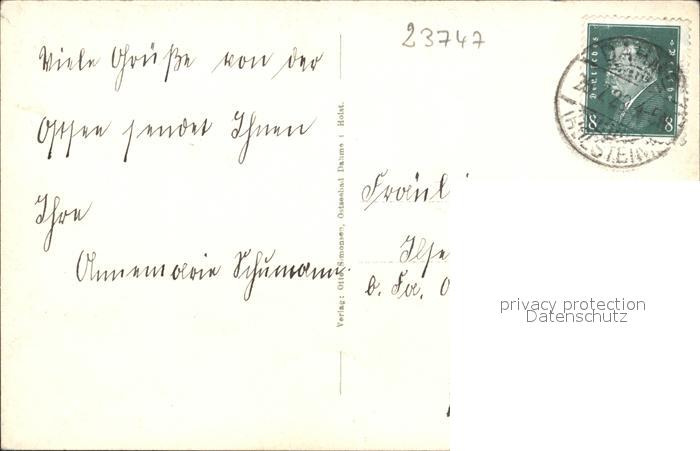 23747
Viele Grüße von der
Ostsee sendet Ihnen
Ihre
Annemarie Schumann.
Verlag: Otto Simonsen, Ostseebad Dahme i. Holst.
Deutsches Reich
8 8
DAHME
(HOLSTEIN)
Fräul
Ilse
b. Fa. O
privacy protection
Datenschutz